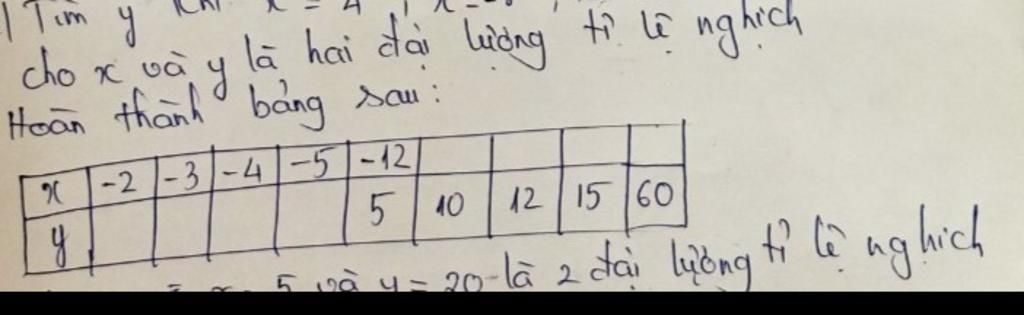 Tìm y khi x = 4
cho x và y là hai đại lượng tỉ lệ nghịch
Hoàn thành bảng sau:
x -2 -3 -4 -5 -12
y 5 10 12 15 60
5 và y = 20 là 2 đại lượng tỉ lệ nghịch